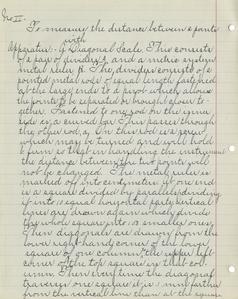 No II.
To measure the distance between 2 points
with
Apparatus:- a Diagonal Scale. This consists
of a pair of dividers, and a metric system
metal ruler. The dividers consists of 2
pointed metal rods of equal length fastened
at the large ends to a pivot which allows
the points to be separated or brought closer to-
gether. Fastened to one rod on the inner
side is a curved This passes through
the other rod, On this rod is a screw
which may be turned and will hold
it firm so that in handling the instrument
the distance between the two points will
not be changed. The metal ruler is
marked off into centimeters. At one end
is a square divided by parallel lines
into 10 equal horizontal parts, vertical
lines are drawn again which divide
the whole square into smaller ones.
Then diagonals are drawn from the
lower right hand corner of the lower
square of one column, the upper left
corner of the top square in that col-
umn. Then every time the diagonal
traverses one square it is 1 mm farther
from the vertical line than at the square